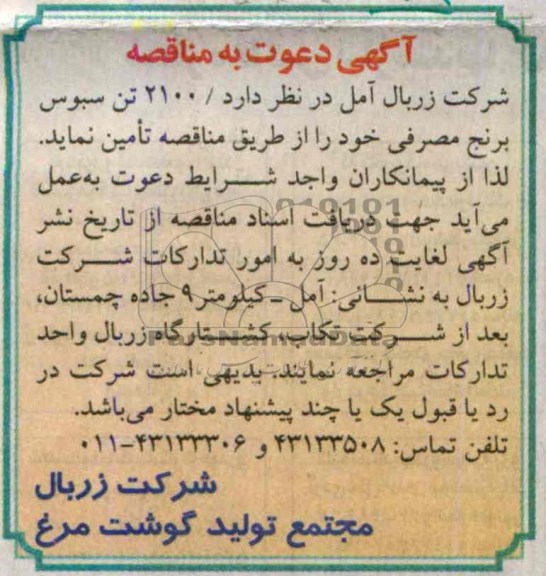 آگهی دعوت به مناقصه
شرکت زربال آمل در نظر دارد / ۲۱۰۰ تن سبوس
برنج مصرفی خود را از طریق مناقصه تأمین نماید.
لذا از پیمانکاران واجد شرایط دعوت به‌عمل
می‌آید جهت دریافت اسناد مناقصه از تاریخ نشر
آگهی لغایت ده روز به امور تدارکات شرکت
زربال به نشانی: آمل - کیلومتر ۹ جاده چمستان،
بعد از شرکت تکاب، کشتارگاه زربال واحد
تدارکات مراجعه نمایند. بدیهی است شرکت در
رد یا قبول یک یا چند پیشنهاد مختار می‌باشد.
تلفن تماس: ۴۳۱۳۳۵۰۸ و ۴۳۱۳۳۳۰۶-۰۱۱
شرکت زربال
مجتمع تولید گوشت مرغ
ParsNamadData